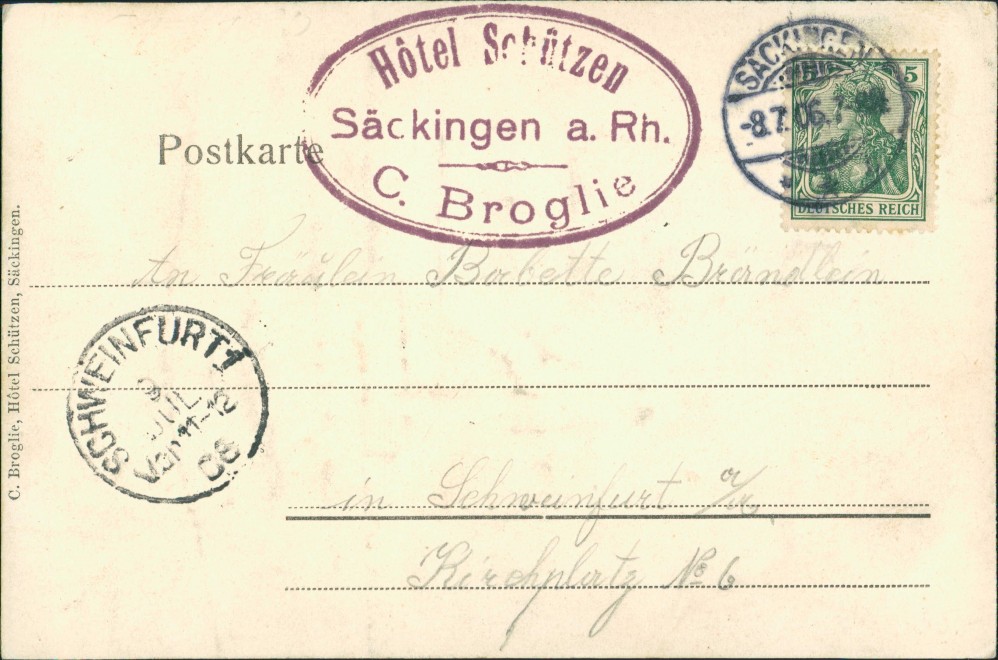 Hôtel Schützen
Säckingen a. Rh.
C. Broglie
SÄCKINGEN
-8.7.06.7-
5
DEUTSCHES REICH
Postkarte
An Fräulein Babette Brändlein
SCHWEINFURT 1
9
JUL
Vor 11-12
06
in Schweinfurt a/M.
Kirchplatz No 6
C. Broglie, Hôtel Schützen, Säckingen.